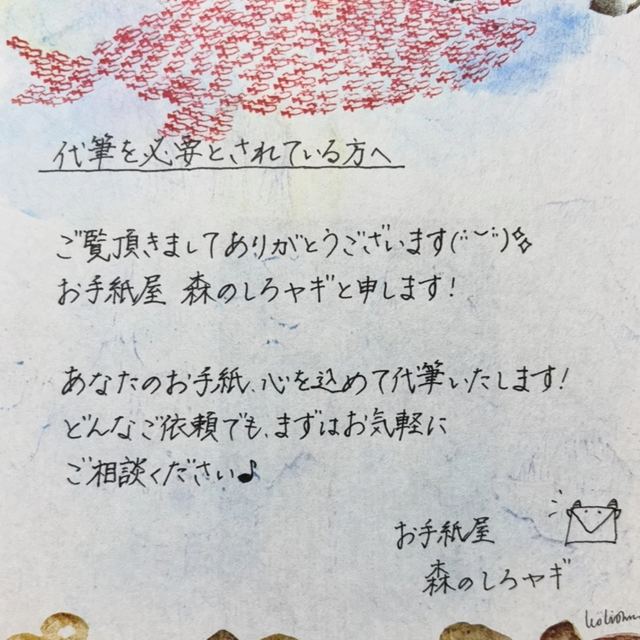 代筆を必要とされている方へ
ご覧頂きましてありがとうございます(¨︶¨)
お手紙屋 森のしろヤギと申します!
あなたのお手紙、心を込めて代筆いたします!
どんなご依頼でも、まずはお気軽に
ご相談ください♪
お手紙屋
森のしろヤギ